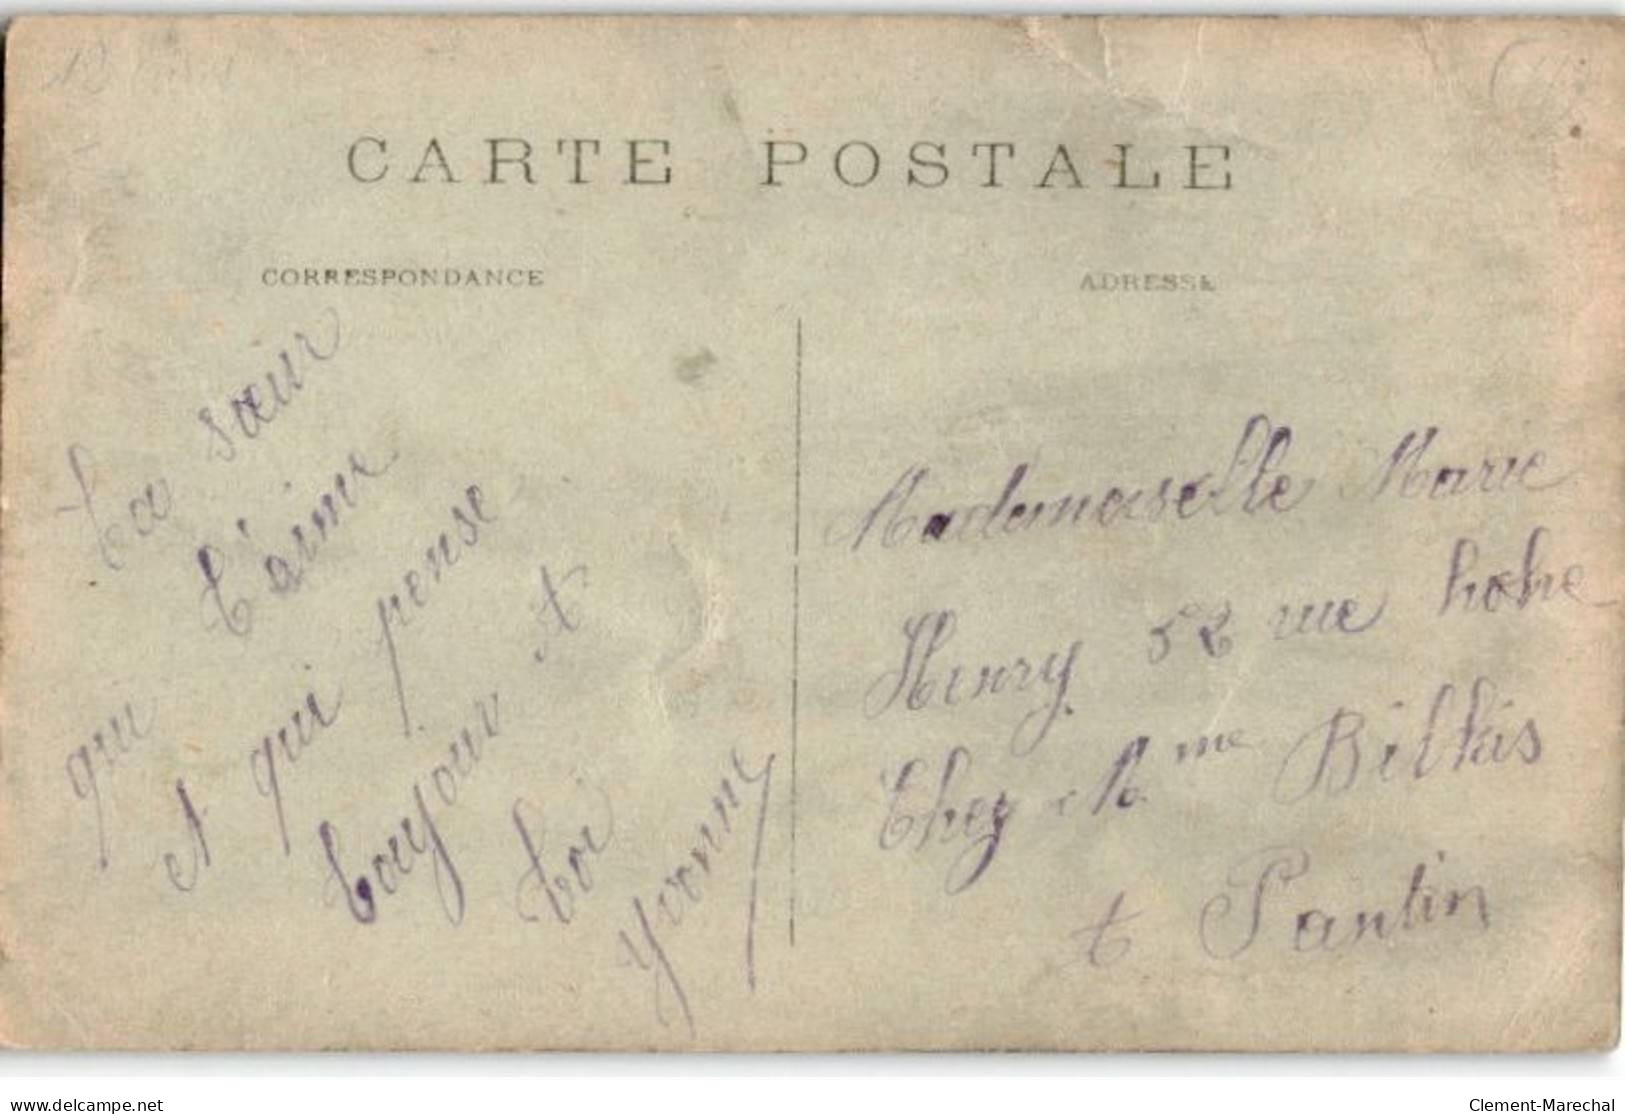 CARTE POSTALE
CORRESPONDANCE
ADRESSE
ta sœur
qui t'aime
et qui pense
toujour à
toi
Yvonne
Mademoiselle Marie
Henry 52 rue hohe
Chez Mme
à Pantin
delcampe.net
Clement-Marechal